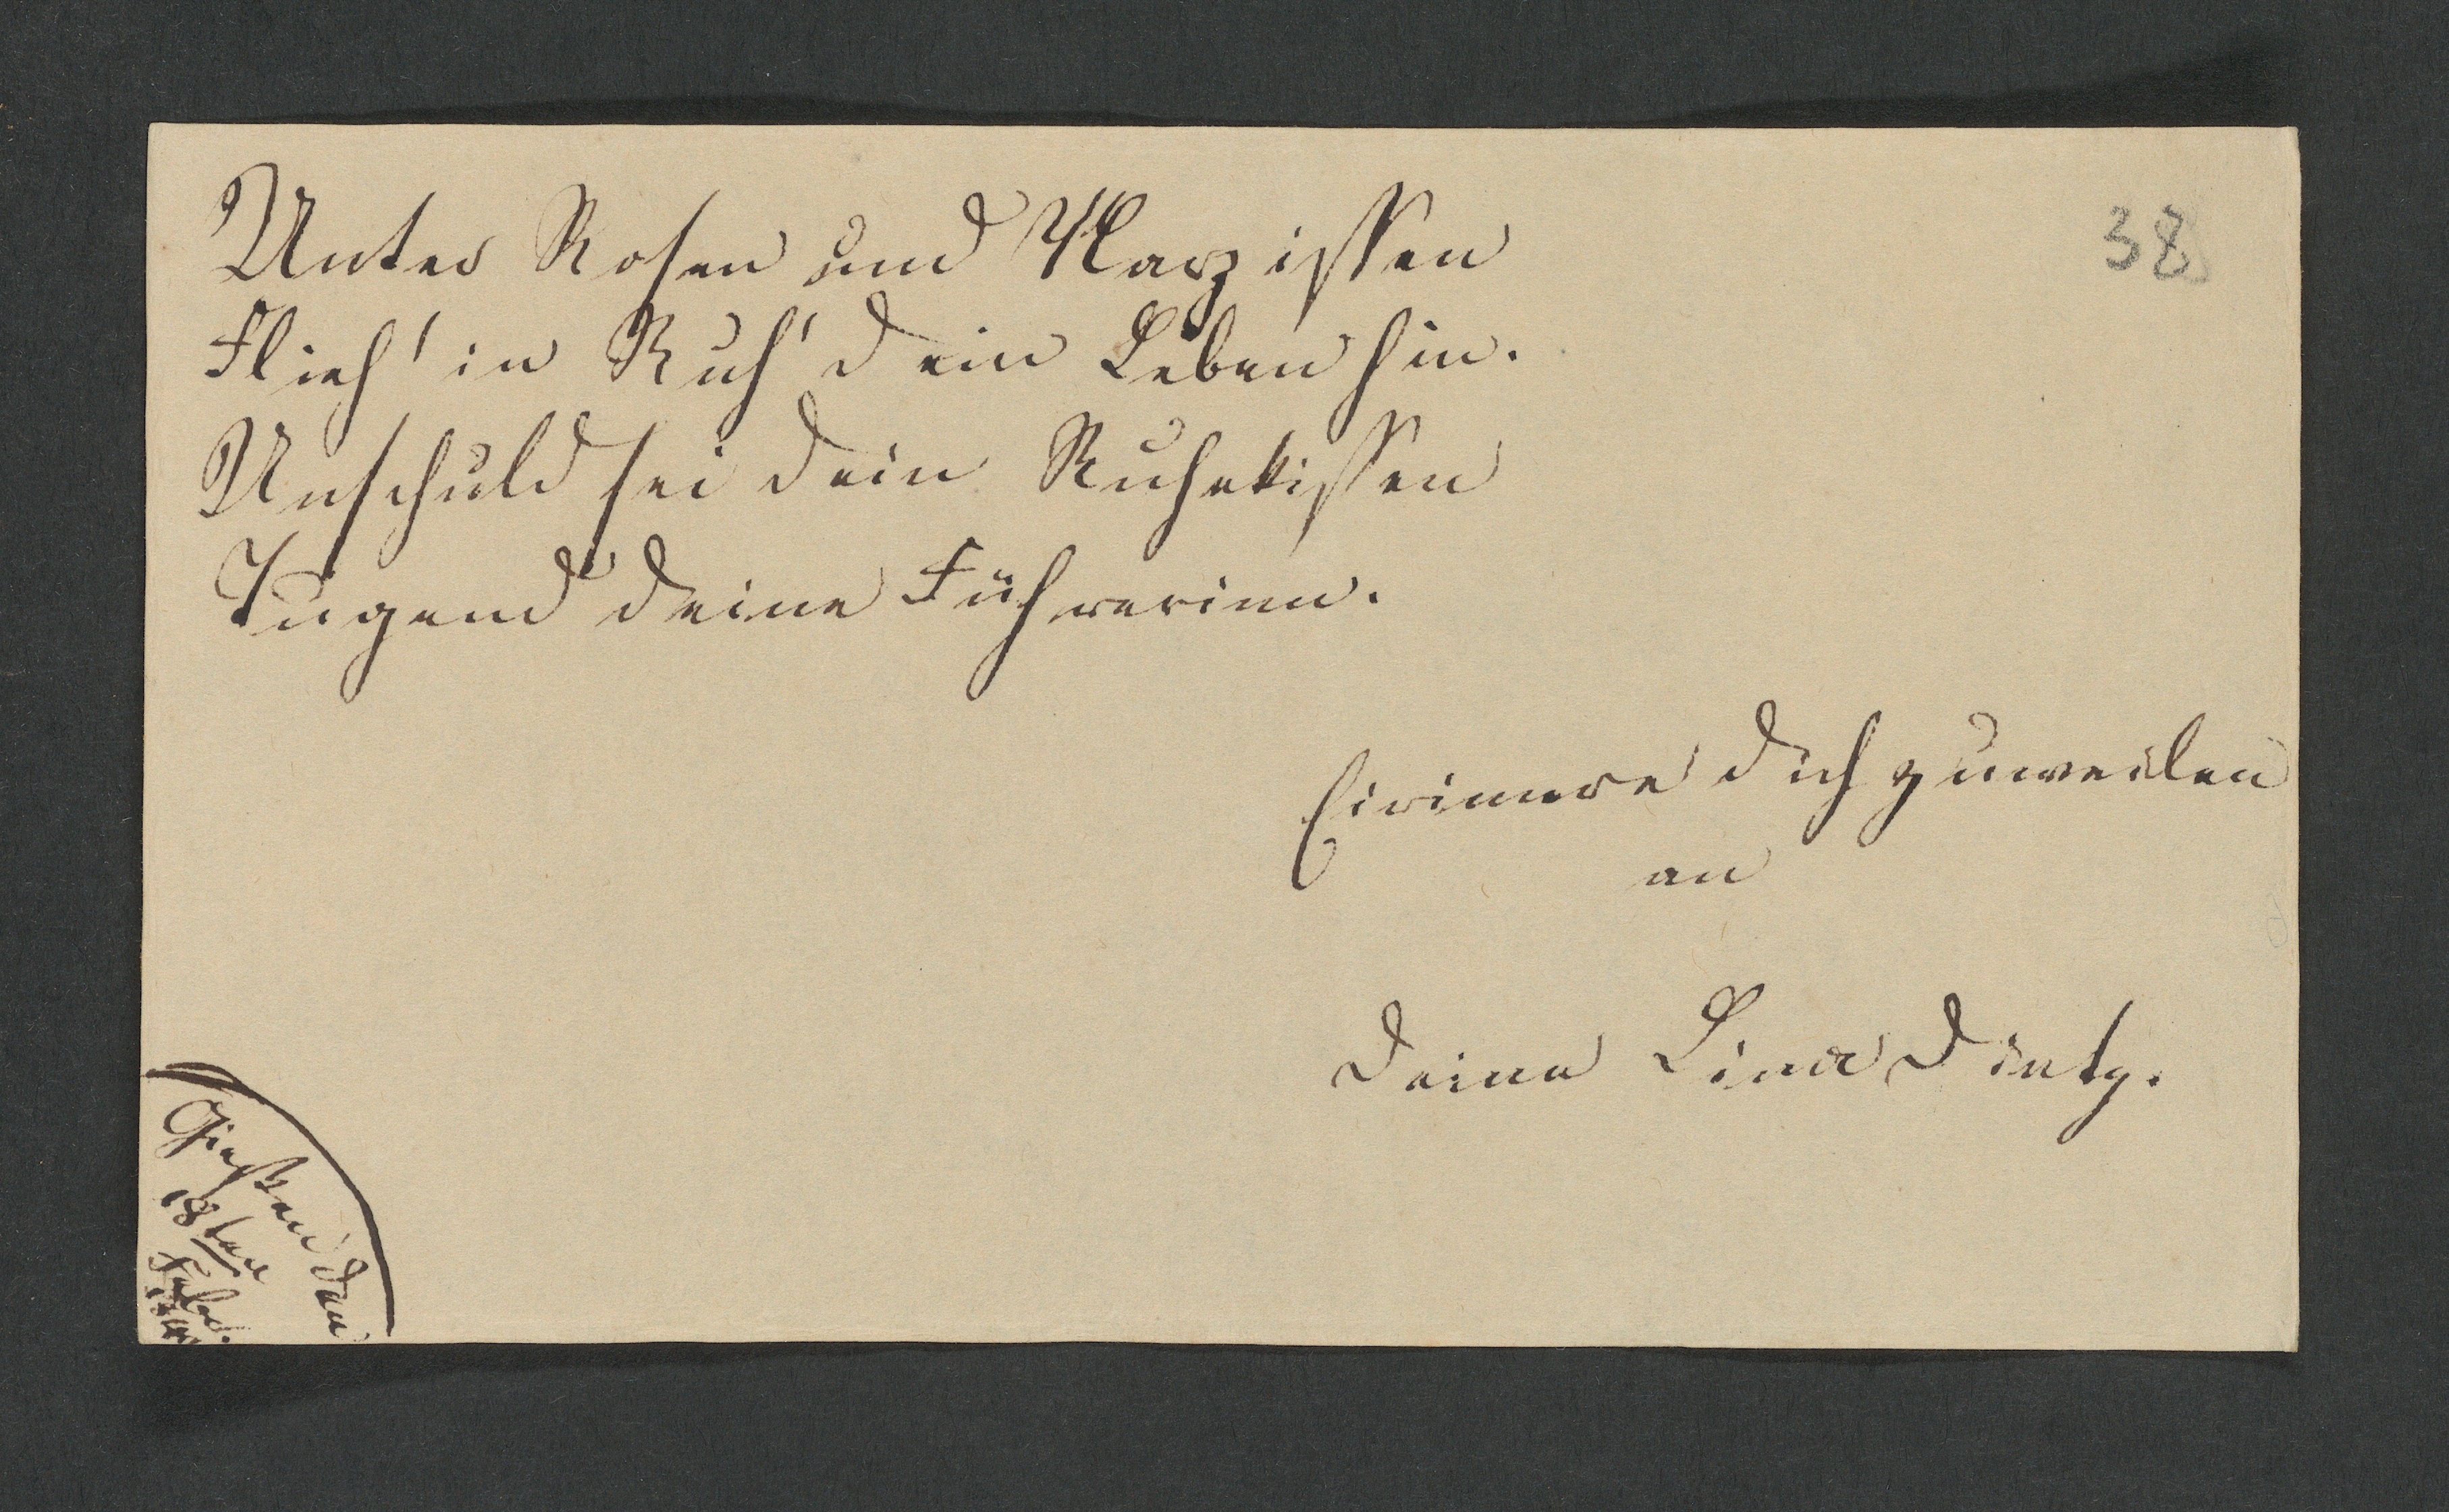 38
Unter Rosen und Narzissen
Flieh' in Ruh' dein Leben hin.
Unschuld sei dein Ruhekissen
Tugend deine Führerinn.
Erinnere dich zuweilen
an
deine Lina Dietz.
Gießen den
18ten